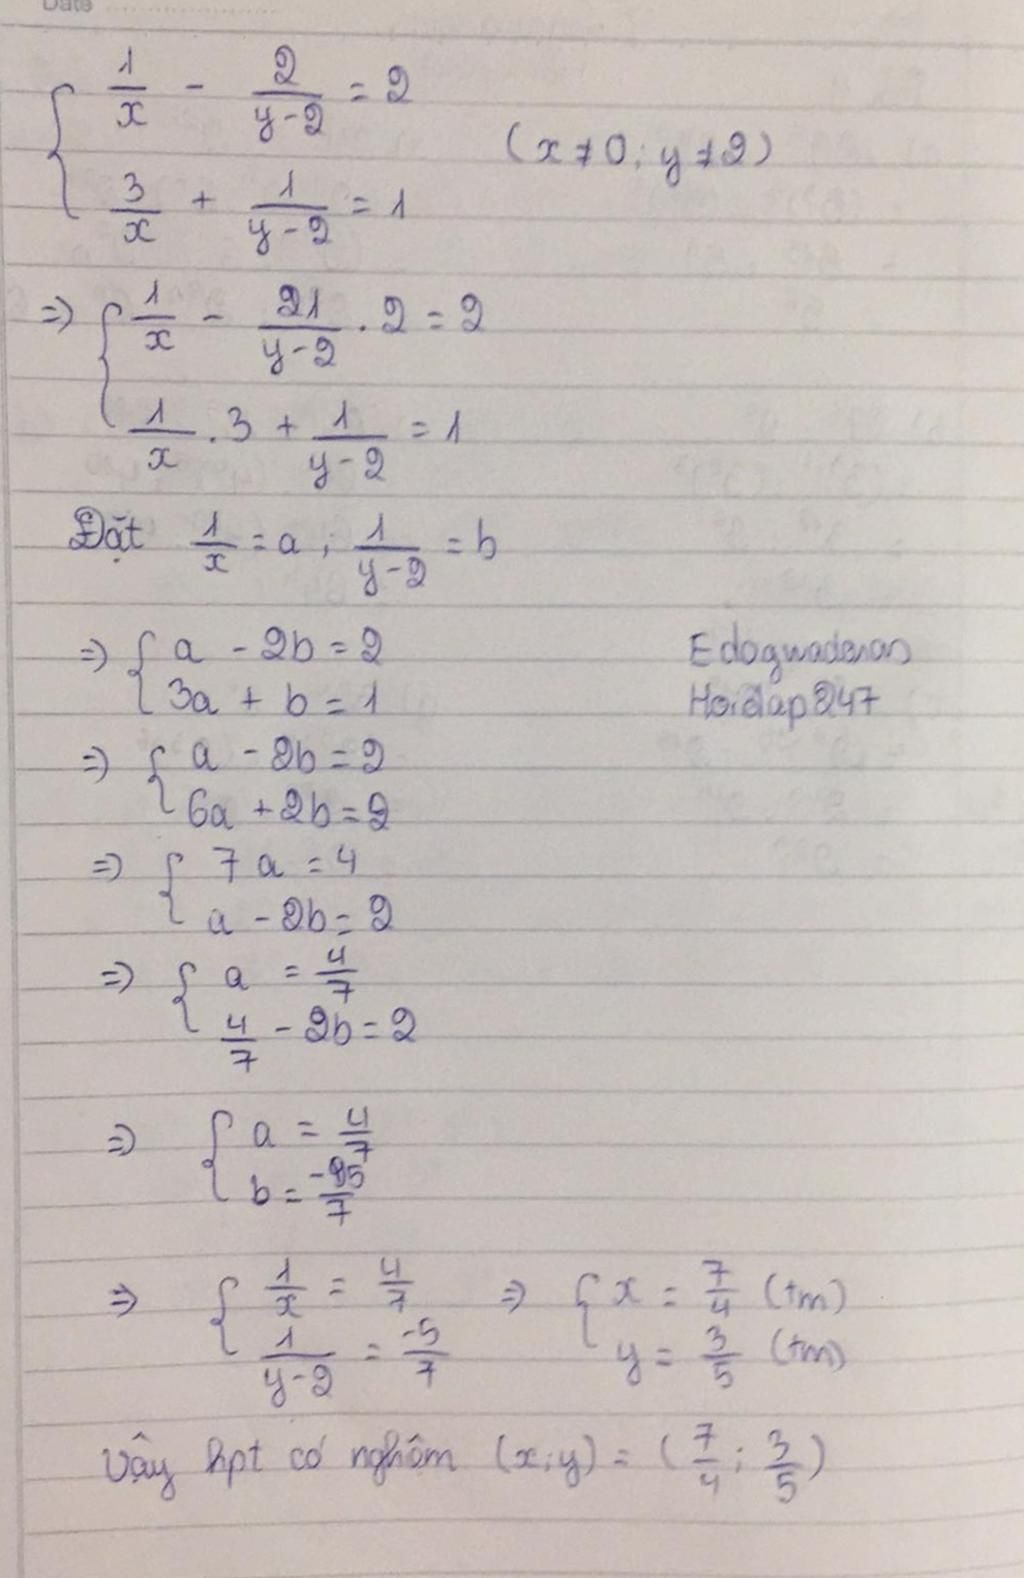 Date
1/x - 2/(y-2) = 2
(x ≠ 0; y ≠ 2)
3/x + 1/(y-2) = 1
=> { 1/x - 21/(y-2) . 2 = 2
1/x . 3 + 1/(y-2) = 1
Đặt 1/x = a ; 1/(y-2) = b
=> { a - 2b = 2
3a + b = 1
Edogwaconan
Hoidap247
=> { a - 2b = 2
6a + 2b = 2
=> { 7a = 4
a - 2b = 2
=> { a = 4/7
4/7 - 2b = 2
=> { a = 4/7
b = -5/7
=> { 1/x = 4/7 => { x = 7/4 (tm)
1/(y-2) = -5/7 y = 3/5 (tm)
Vậy hpt có nghiệm (x;y) = (7/4 ; 3/5)